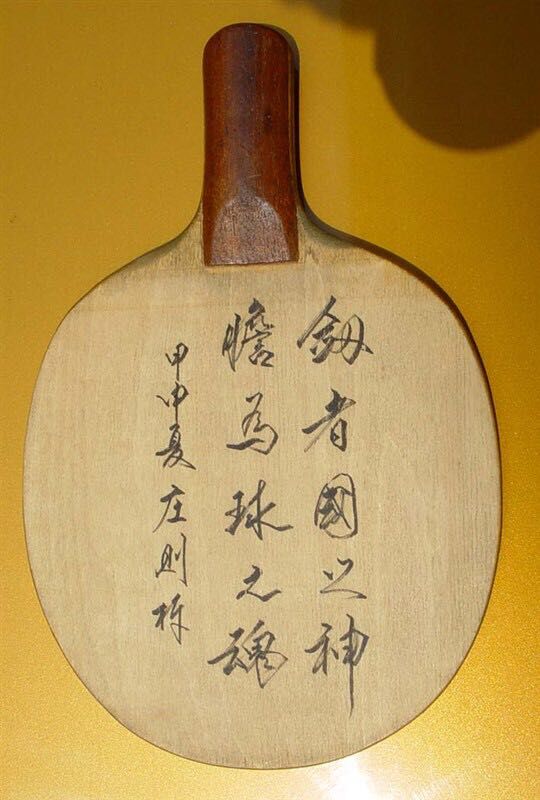 釼者國之神
膽為球之魂
甲申夏 庄则栋